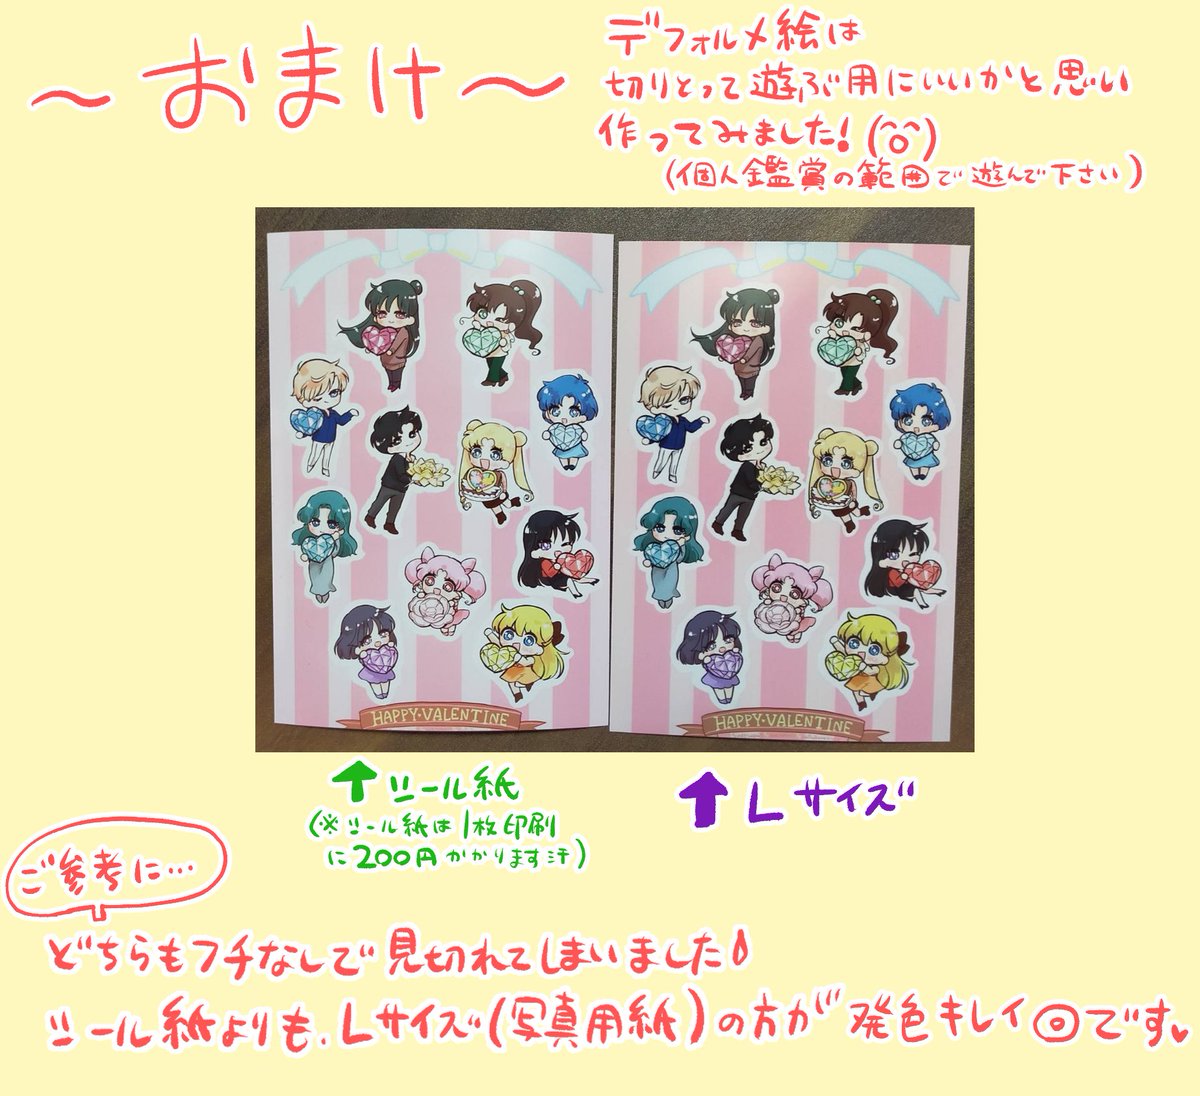 ～おまけ～
デフォルメ絵は
切りとって遊ぶ用にいいかと思い
作ってみました!(^o^)
(個人鑑賞の範囲で遊んで下さい)
HAPPY・VALENTINE
HAPPY・VALENTINE
↑シール紙
(※シール紙は1枚印刷
に200円かかります汗)
↑Lサイズ
ご参考に…
どちらもフチなしで見切れてしまいました
シール紙よりも、Lサイズ(写真用紙)の方が発色キレイ◎です♥